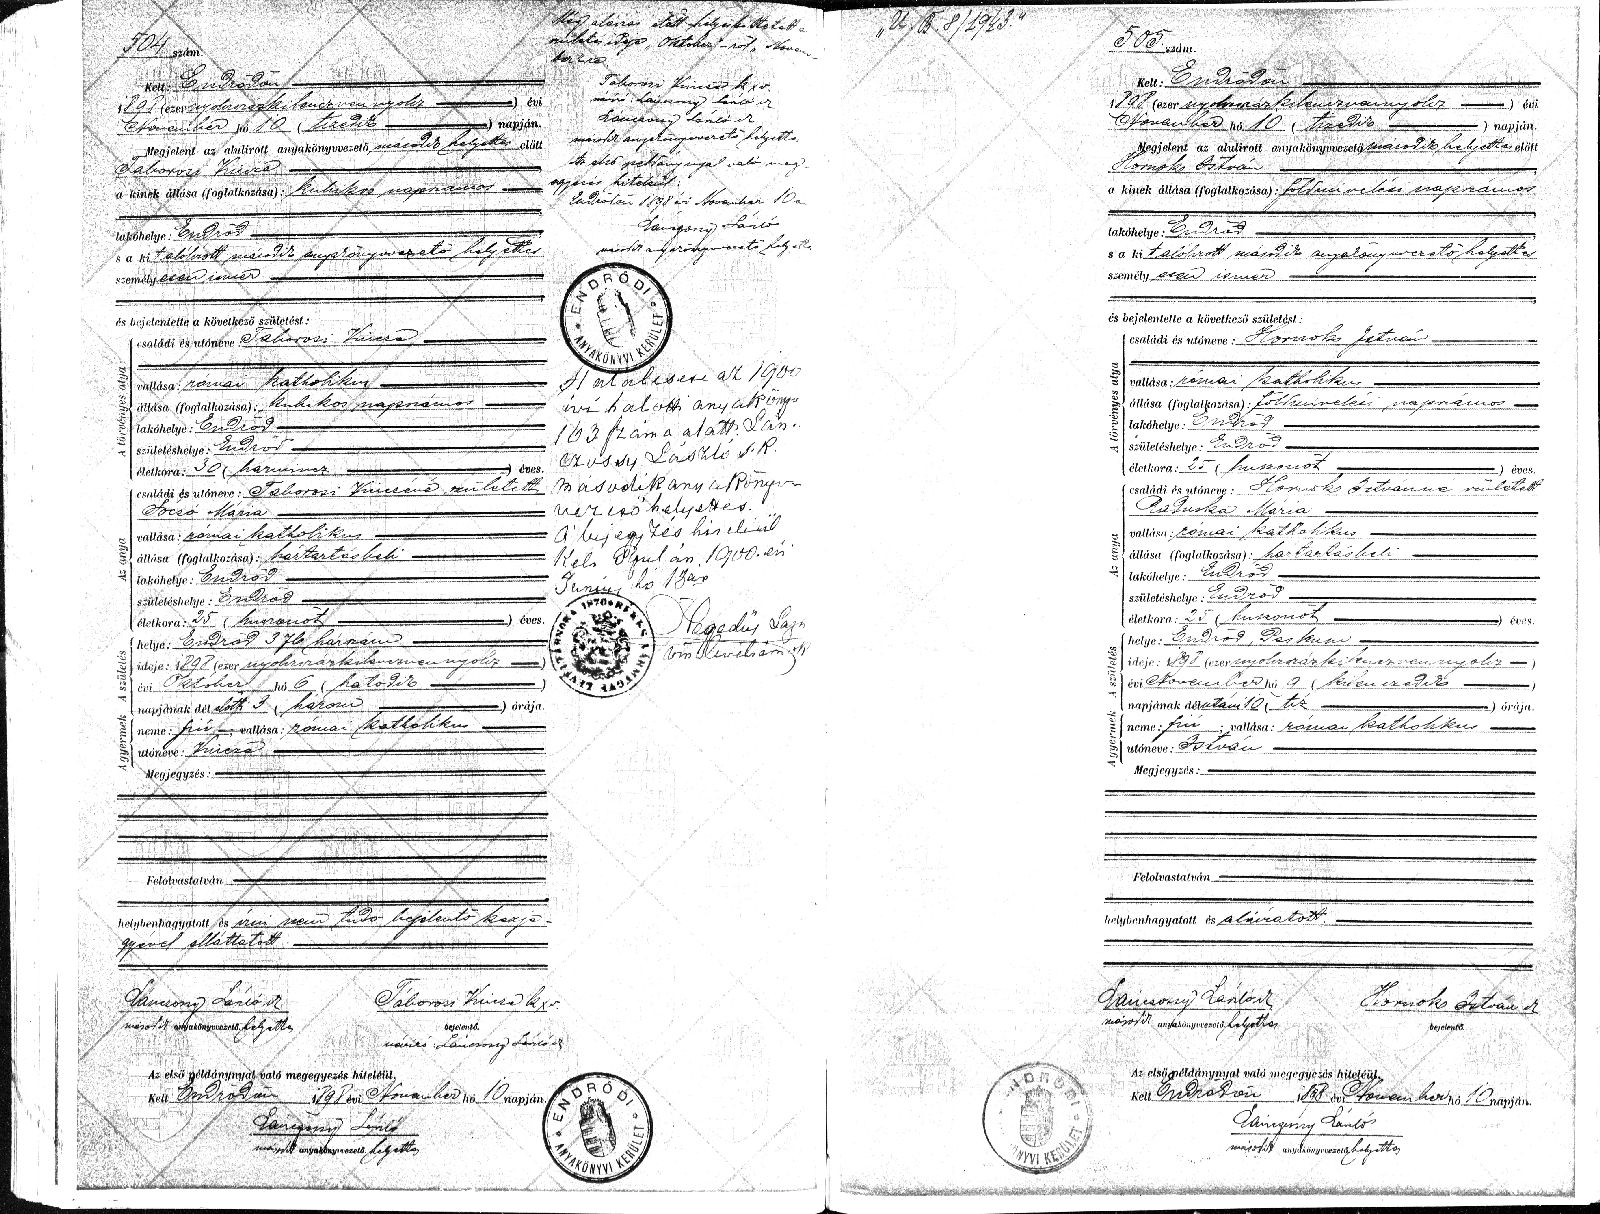 504 szám.
Kelt: Endrődön
1898 (ezer nyolcszázkilencvennyolcz) évi
November hó 10 (tizedik) napján.
Megjelent az alulirott anyakönyvvezető második helyettes előtt
Táborosi Vincze
a kinek állása (foglalkozása): kubikos napszámos
lakóhelye: Endrőd
s a kit alólirott második anyakönyvvezető helyettes
személyesen ismer
és bejelentette a következő születést:
A törvényes atya
családi és utóneve Táborosi Vincze
vallása: római katholikus
állása (foglalkozása): kubikos napszámos
lakóhelye: Endrőd
születéshelye: Endrőd
életkora: 30 (harmincz) éves.
Az anya
családi és utóneve: Táborosi Vinczéné született
Mária
vallása: római katholikus
állása (foglalkozása): háztartásbeli
lakóhelye: Endrőd
születéshelye: Endrőd
életkora: 25 (huszonöt) éves.
A születés
helye: Endrőd 376 harmin
ideje: 1898 (ezer nyolcszázkilencvennyolcz)
évi Október hó 6 (hatodik)
napjának dél előtt 3 (három) órája.
A gyermek
neme: fiú vallása: római katholikus
utóneve: Vincze
Megjegyzés:
Felolvastatván
helybenhagyatott és irni nem tudó bejelentő kézje-
gyével elláttatott
Lánczony László sk Táborosi Vincze k x v
második anyakönyvvezető helyettes bejelentő.
névíró: Lánczony László sk
Az első példánynyal való megegyezés hiteléül,
Kelt Endrődön 1898 évi November hó 10 napján.
Lánczony László
második anyakönyvvezető helyettes
ENDRŐDI
ANYAKÖNYVI KERÜLET
Még aláirás előtt helyesbittetett a
születés ideje „Október"-ről „Novem-
berre
Táborosi Vincze k x v
névíró: Lánczony László sk
Lánczony László sk
második anyakönyvvezető helyettes
Az első példánynyal való meg-
egyezés hiteléül:
Endrődön 1898 évi November 10 n
Lánczony László
második anyakönyvvezető helyettes
ENDRŐDI
ANYAKÖNYVI KERÜLET
az 1900
évi halotti anyakönyv
163 száma alatt: Lán-
László s.k.
második anyakönyv-
vezető helyettes.
A bejegyzés hiteléül
Kelt Gyulán, 1900. évi
Junius hó 18án
Hegedüs
s.k.
„U. B. 8/1943"
505 szám.
Kelt: Endrődön
1898 (ezer nyolcszázkilencvennyolcz) évi
November hó 10 (tizedik) napján.
Megjelent az alulirott anyakönyvvezető második helyettes előtt
Hornok István
a kinek állása (foglalkozása): földmivelési napszámos
lakóhelye: Endrőd
s a kit alólirott, második anyakönyvvezető helyettes
személyesen ismer
és bejelentette a következő születést:
A törvényes atya
családi és utóneve: Hornok István
vallása: római katholikus
állása (foglalkozása): földmivelési napszámos
lakóhelye: Endrőd
születéshelye: Endrőd
életkora: 25 (huszonöt) éves.
Az anya
családi és utóneve: Hornok Istvánné született
Mária
vallása: római katholikus
állása (foglalkozása): háztartásbeli
lakóhelye: Endrőd
születéshelye: Endrőd
életkora: 25 (huszonöt) éves.
A születés
helye: Endrőd,
ideje: 1898 (ezer nyolcszázkilencvennyolcz)
évi November hó 9 (kilenczedik)
napjának dél után 10 (tiz) órája.
A gyermek
neme: fiú vallása: római katholikus
utóneve: István
Megjegyzés:
Felolvastatván
helybenhagyatott és aláiratott.
Lánczony László sk Hornok István sk
második anyakönyvvezető helyettes bejelentő.
Az első példánynyal való megegyezés hiteléül,
Kelt Endrődön 1898 évi November hó 10 napján.
Lánczony László
második anyakönyvvezető helyettes
ENDRŐDI
ANYAKÖNYVI KERÜLET